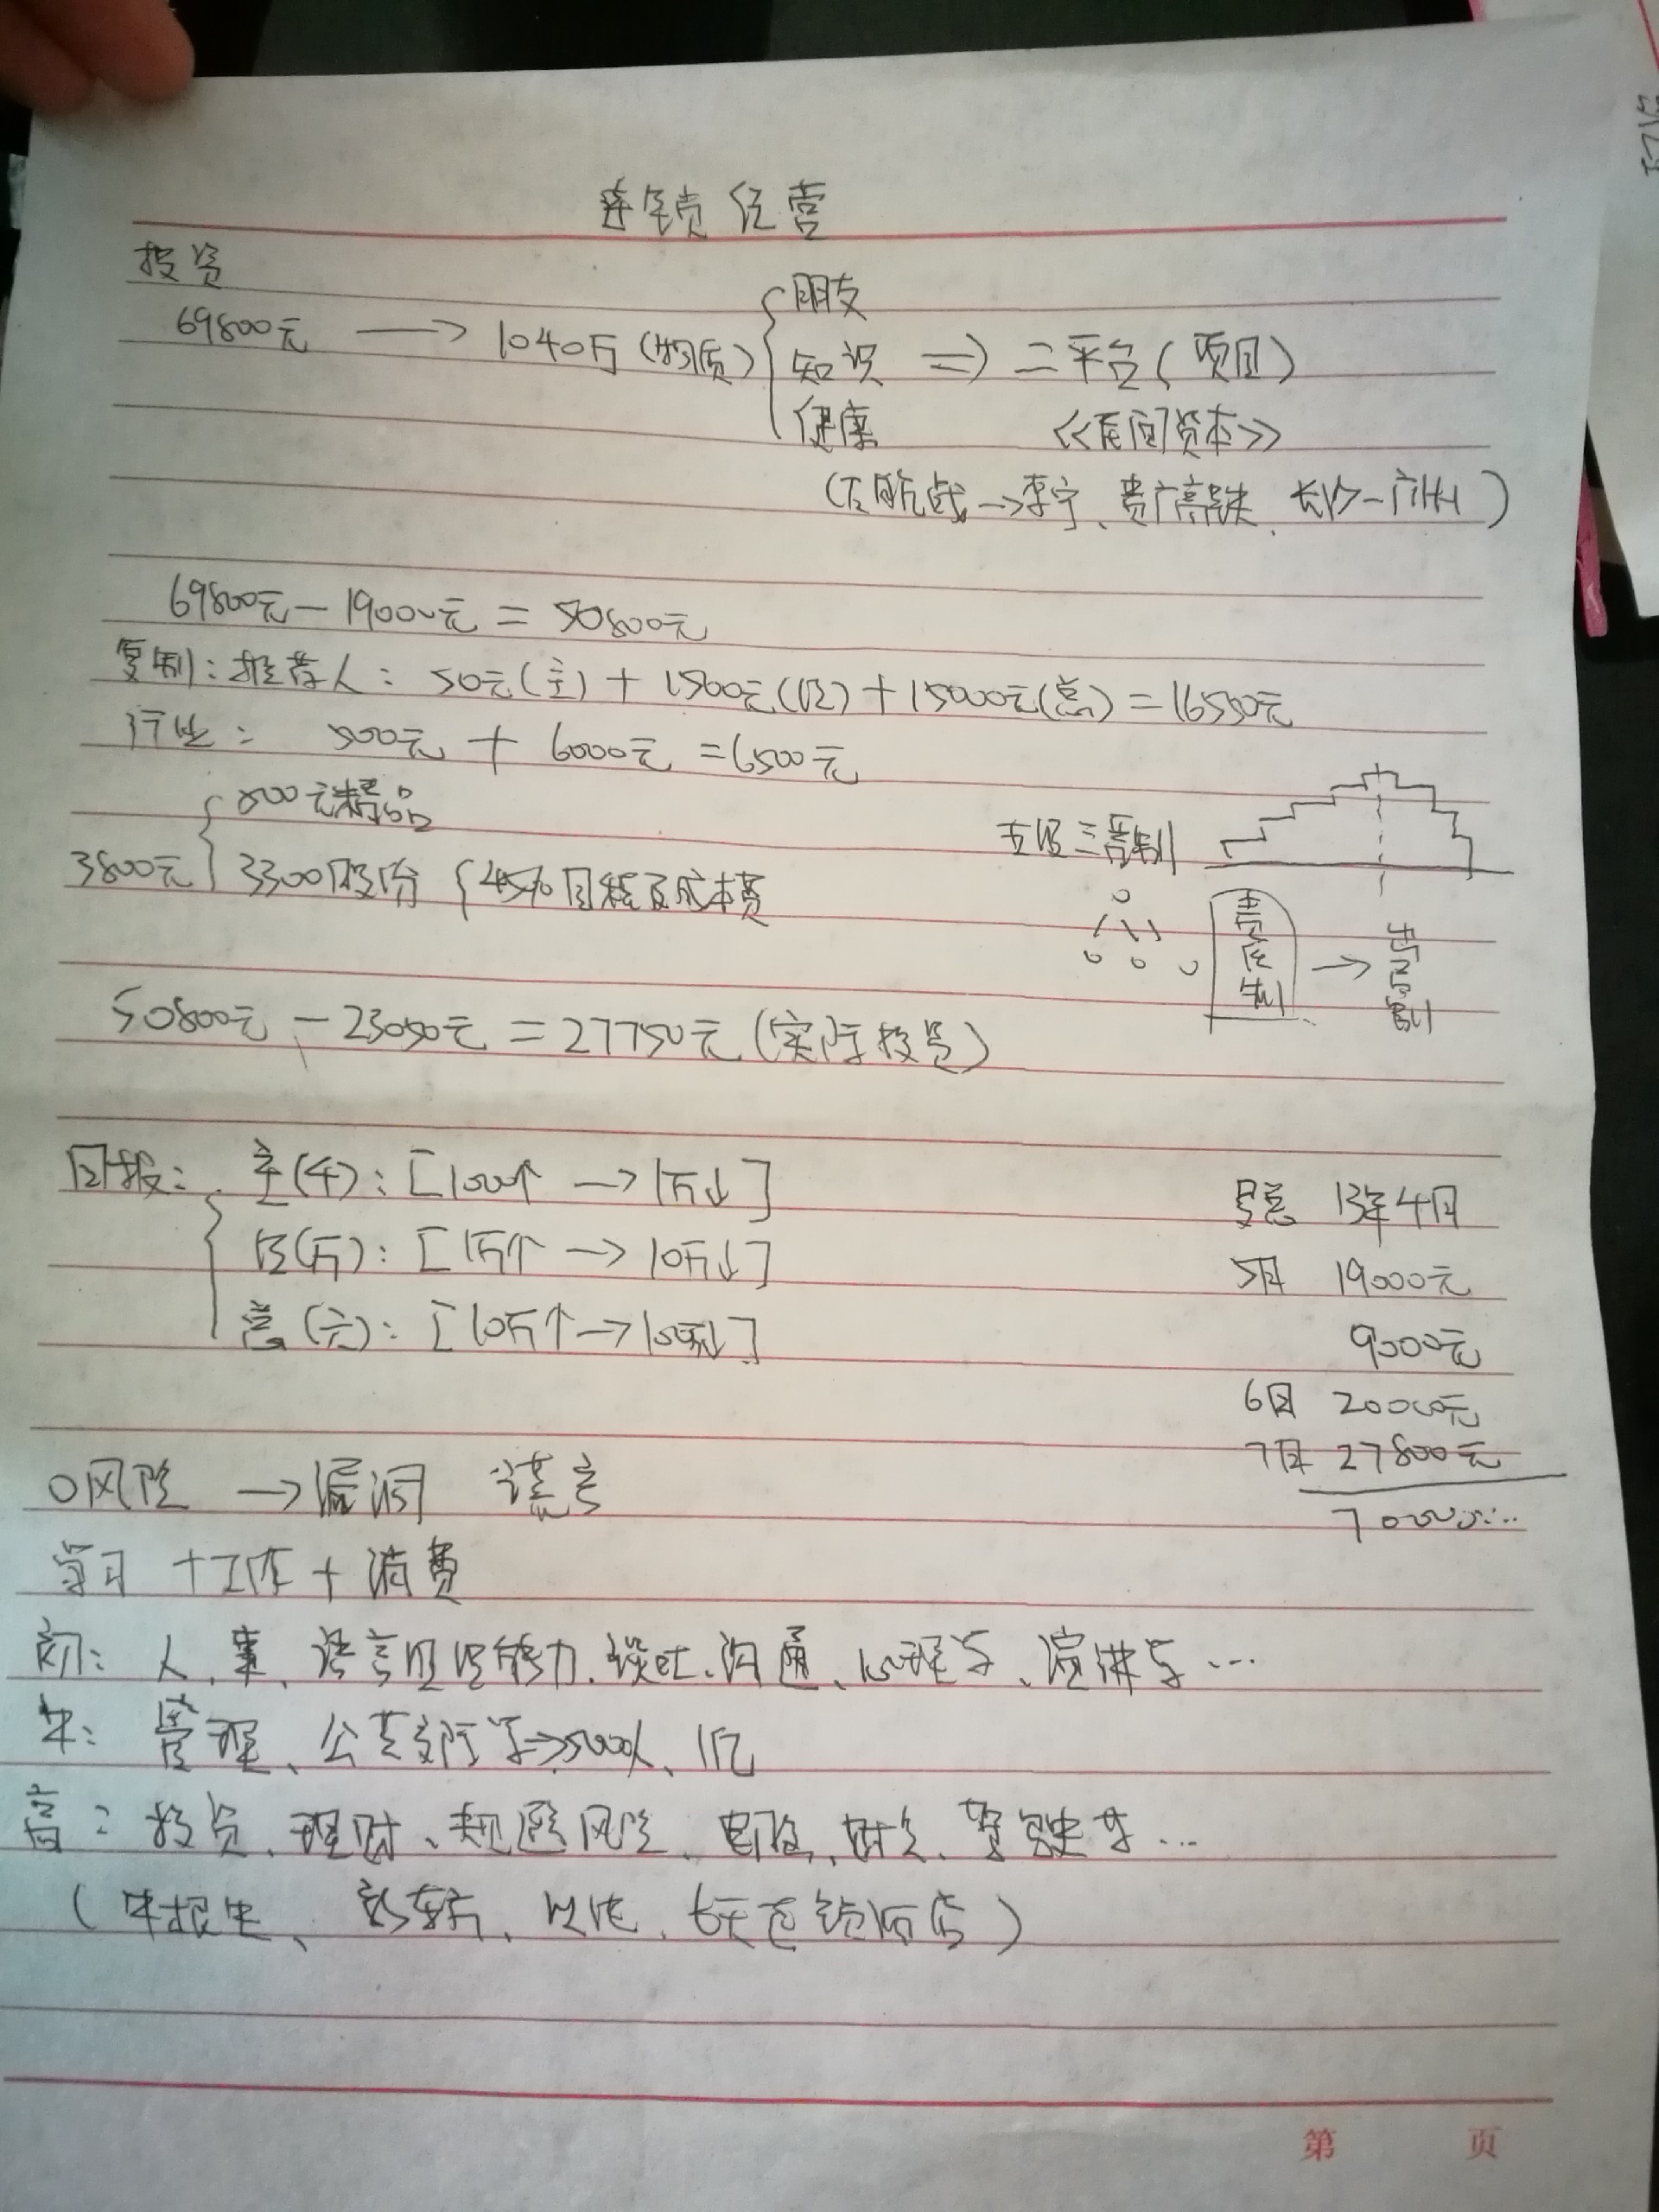 连锁经营
投资
69800元 → 1040万(物质) { 朋友
知识 ⇒ 二平台(项目)
健康 《民间资本》
→李宁、贵广高铁、长沙-广州)
69800元-19000元=50800元
复制:推荐人:50元(主)+1500元(经)+15000元(总)=16550元
衍生: 500元+6000元=6500元
3800元 { 500元精品
3300股份 {45%
五级三晋制
责任制 → 出局制
50800元-23050元=27750元(实际投资)
回报: 主(千):[1000个→1万↓]
经(万):[1万个→10万↓]
总(六):[10万个→100万↓]
13年4月
5月 19000元
9000元
6月 20000元
7月 27800元
0风险 →漏洞 谎言
学习+工作+消费
初: 人、事、语言组织能力、谈吐、沟通、心理学、演讲学…
中: 管理、公关 5000人、1亿
高: 投资、理财、规避风险、
(牛根生、 七天连锁酒店)
第 页